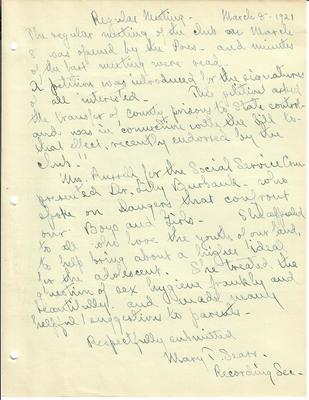 Regular Meeting - March 8 - 1921
The regular meeting of the club on March
8 was opened by the Pres - and minutes
of the last meeting were read.
A petition was introduced for the signatures
of all interested - The petition asked
the transfer of County prisons to State control -
and was in connection with the Bill to
that effect, recently endorsed by the
club.
Mrs. Russell for the Social Service Com
presented Dr. Lily Burbank - who
spoke on Dangers that confront
our Boys and Girls - She appealed
to all who love the youth of our land,
to help bring about a higher ideal
for the adolescent. She treated the
question of sex hygiene frankly and
beautifully - and made many
helpful suggestions to parents -
Respectfully submitted
Mary T. Sears -
Recording Sec -